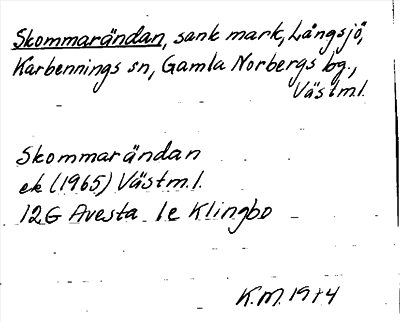 Skommarändan, sank mark, Långsjö,
Karbennings sn, Gamla Norbergs bg.,
Västml.
Skommarändan
ek (1965) Västm.l.
12G Avesta 1e Klingbo
K.M. 1974